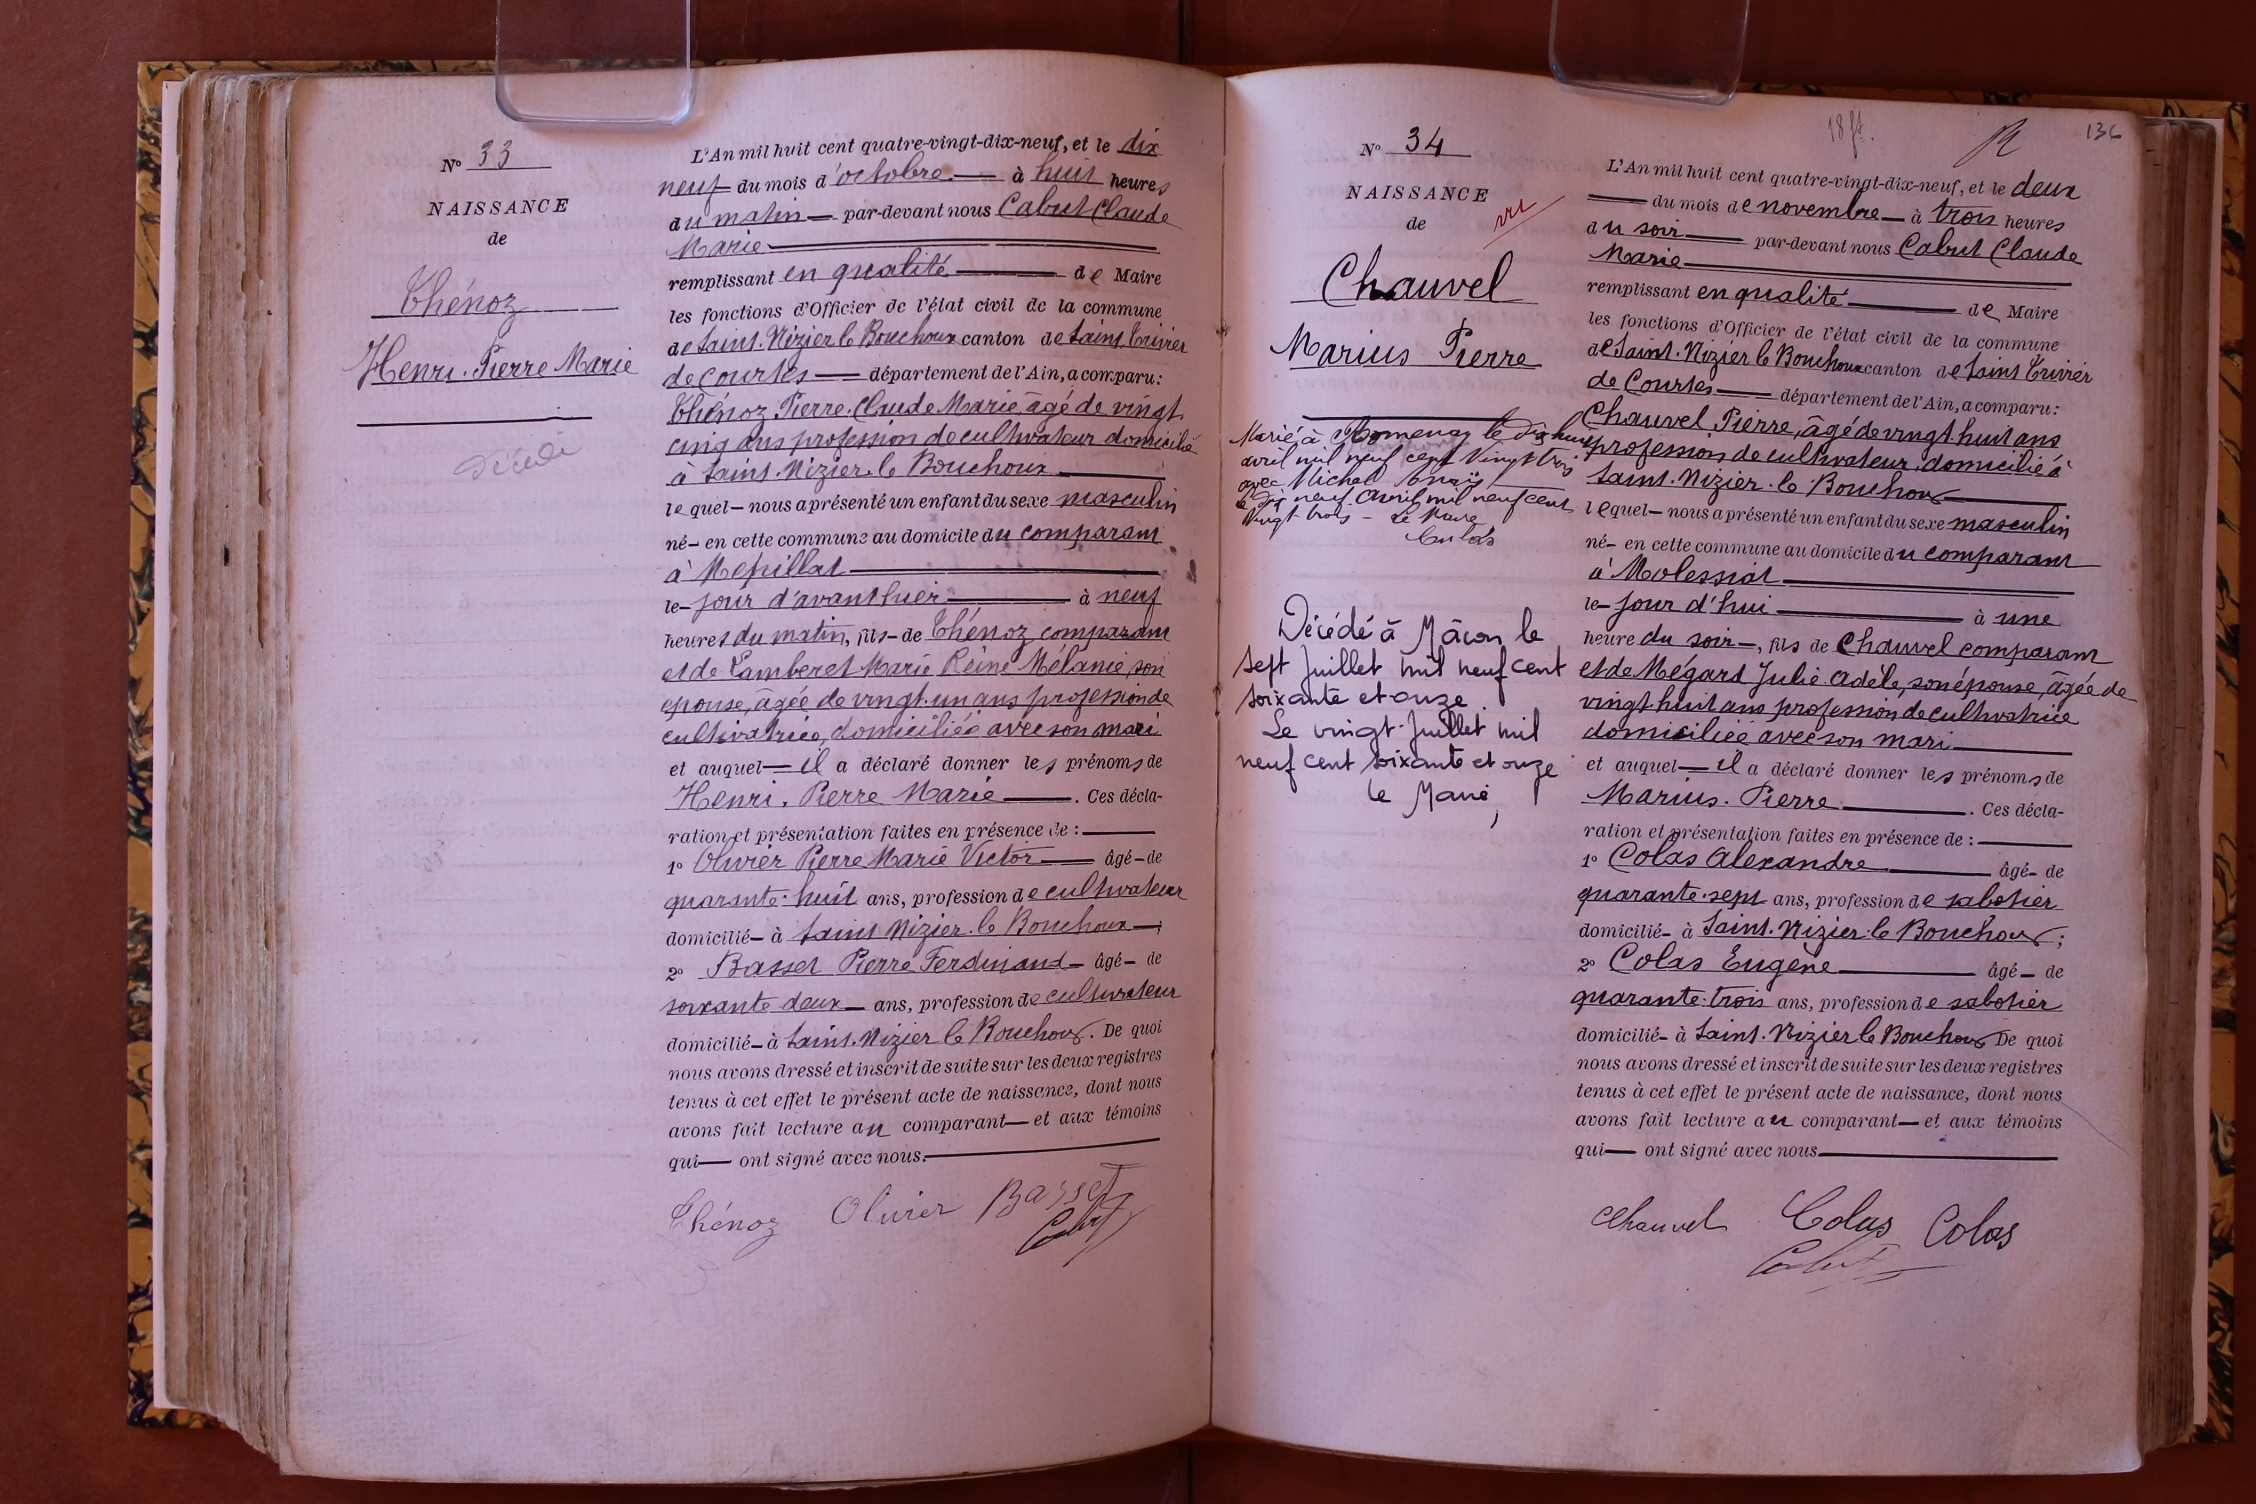 N° 33
NAISSANCE
de
Thénoz
Henri. Pierre Marie
Décédé
L'An mil huit cent quatre-vingt-dix-neuf, et le dix
neuf du mois d'octobre à huit heures
du matin par-devant nous Cabut Claude
Marie
remplissant en qualité de Maire
les fonctions d'Officier de l'état civil de la commune
de Saint. Nizier le Bouchoux canton de Saint Trivier
de Courtes département de l'Ain, a comparu:
Thénoz Pierre. Claude Marie âgé de vingt
cinq ans profession de cultivateur domicilié
à Saint. Nizier. le Bouchoux
lequel nous a présenté un enfant du sexe masculin
né en cette commune au domicile du comparant
à Mépillat
le jour d'avant hier à neuf
heures du matin, fils de Thénoz comparant
et de Lamberet Marie Reine Mélanie, son
épouse, âgée de vingt-un ans profession de
cultivatrice, domiciliée avec son mari
et auquel il a déclaré donner les prénoms de
Henri. Pierre Marie. Ces décla-
ration et présentation faites en présence de :
1° Olivier Pierre Marie Victor âgé de
quarante-huit ans, profession de cultivateur
domicilié à Saint Nizier. le Bouchoux ;
2° Basset Pierre Ferdinand âgé de
soixante deux ans, profession de cultivateur
domicilié à Saint. Nizier le Bouchoux. De quoi
nous avons dressé et inscrit de suite sur les deux registres
tenus à cet effet le présent acte de naissance, dont nous
avons fait lecture au comparant et aux témoins
qui ont signé avec nous.
Thénoz Olivier Basset
Cabut
18 ft. 136
N° 34
NAISSANCE
de
Chauvel
Marius Pierre
Marié à Romenay le dix huit
avril mil neuf cent vingt trois
avec Michel
neuf avril mil neuf cent
vingt trois - Le Maire
Colas
Décédé à Mâcon le
sept Juillet mil neuf cent
soixante et onze
Le vingt Juillet mil
neuf cent soixante et onze
le Maire,
L'An mil huit cent quatre-vingt-dix-neuf, et le deux
du mois de novembre à trois heures
du soir par-devant nous Cabut Claude
Marie
remplissant en qualité de Maire
les fonctions d'Officier de l'état civil de la commune
de Saint. Nizier le Bouchoux canton de Saint Trivier
de Courtes département de l'Ain, a comparu:
Chauvel Pierre, âgé de vingt-huit ans
profession de cultivateur domicilié à
Saint. Nizier. le Bouchoux
lequel nous a présenté un enfant du sexe masculin
né en cette commune au domicile du comparant
à Molessiat
le jour d'hui à une
heure du soir, fils de Chauvel comparant
et de Mégard Julie Adèle, son épouse, âgée de
vingt-huit ans profession de cultivatrice
domiciliée avec son mari
et auquel il a déclaré donner les prénoms de
Marius. Pierre. Ces décla-
ration et présentation faites en présence de :
1° Colas Alexandre âgé de
quarante-sept ans, profession de sabotier
domicilié à Saint. Nizier. le Bouchoux ;
2° Colas Eugène âgé de
quarante-trois ans, profession de sabotier
domicilié à Saint. Nizier le Bouchoux De quoi
nous avons dressé et inscrit de suite sur les deux registres
tenus à cet effet le présent acte de naissance, dont nous
avons fait lecture au comparant et aux témoins
qui ont signé avec nous
Chauvel Colas Colas
Cabut